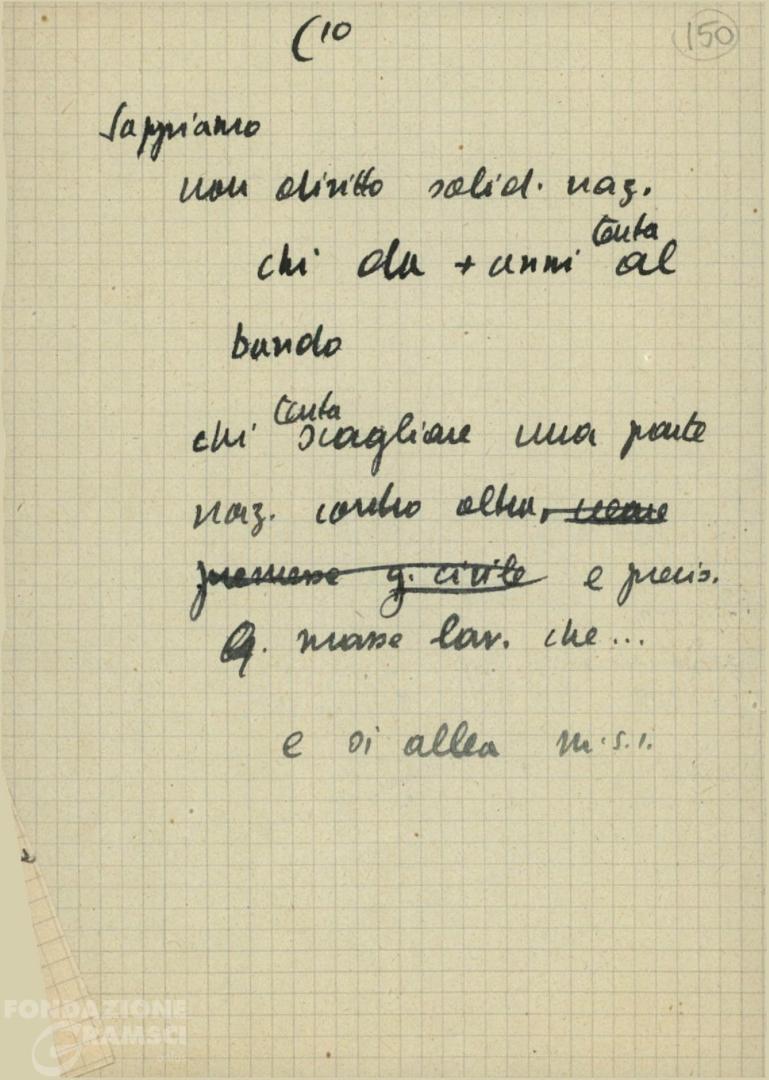 (10
150
Sappiamo
non diritto solid. naz.
chi da + anni tenta al
bando
chi tenta scagliare una parte
naz. contro altra,
premesse g. civile e precis.
masse lav. che...
e si allea m.s.i.
FONDAZIONE
GRAMSCI